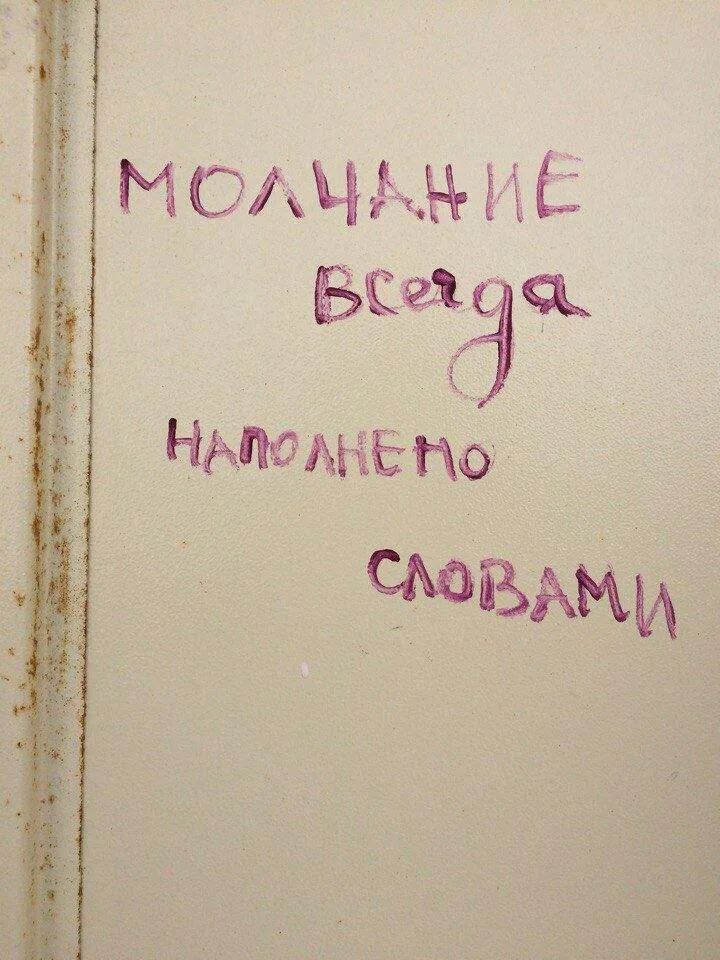 МОЛЧАНИЕ
всегда
НАПОЛНЕНО
СЛОВАМИ